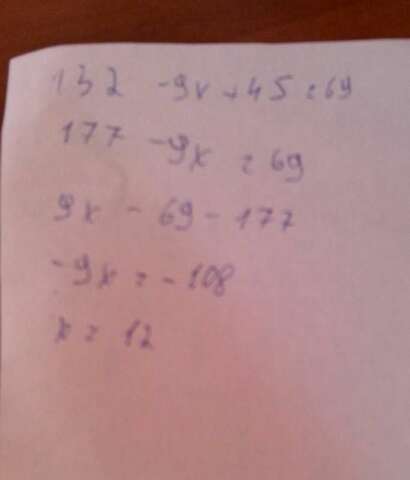 132 -9x + 45 = 69
177 -9x = 69
9x - 69 - 177
-9x = -108
x = 12